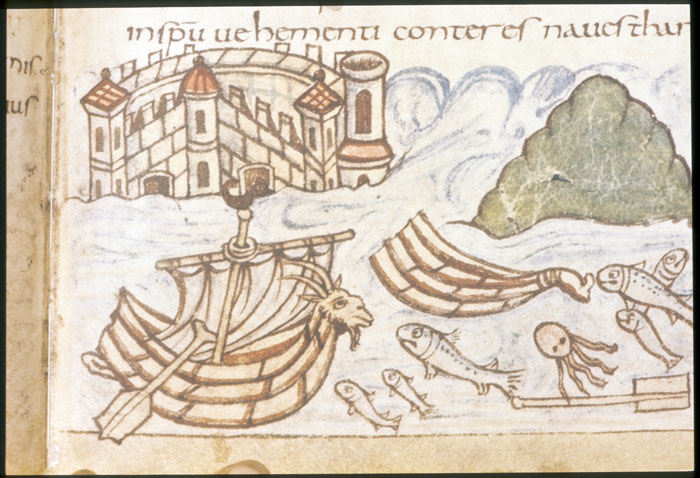 inspū uehementi conteres naues thar